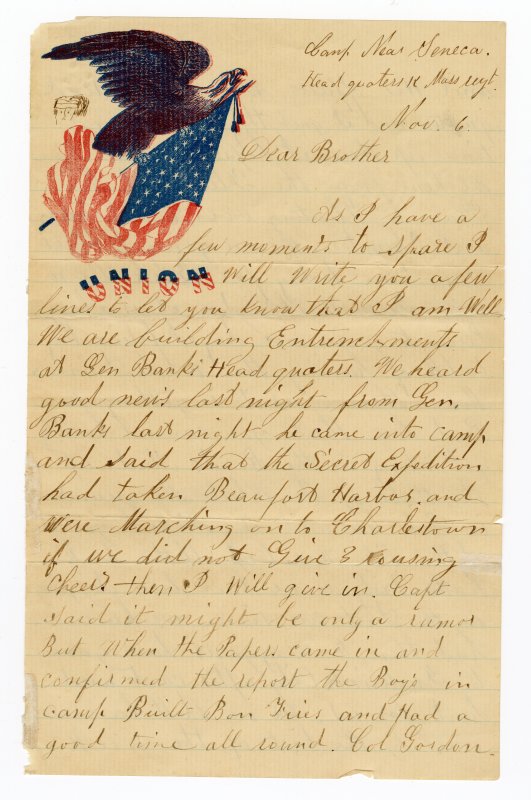 Camp Near Seneca.
Head quaters K Mass regt.
Nov. 6.
Dear Brother
As I have a
few momen's to spare I
UNION
Will Write you a few
lines to let you know that I am Well
We are building Entrenchments
at Gen Banks Head quaters. We heard
good news last night from Gen.
Banks last night he came into camp
and said that the Secret Expedition
had taken Beaufort Harbor. and
Were Marching on to Charlestown
if we did not Give 3 rousing
Cheers then I Will give in. Capt
said it might be only a rumor
But When the Papers came in and
confirmed the report the Boy's in
camp Built Bon Fires and Had a
good time all round. Col Gordon.